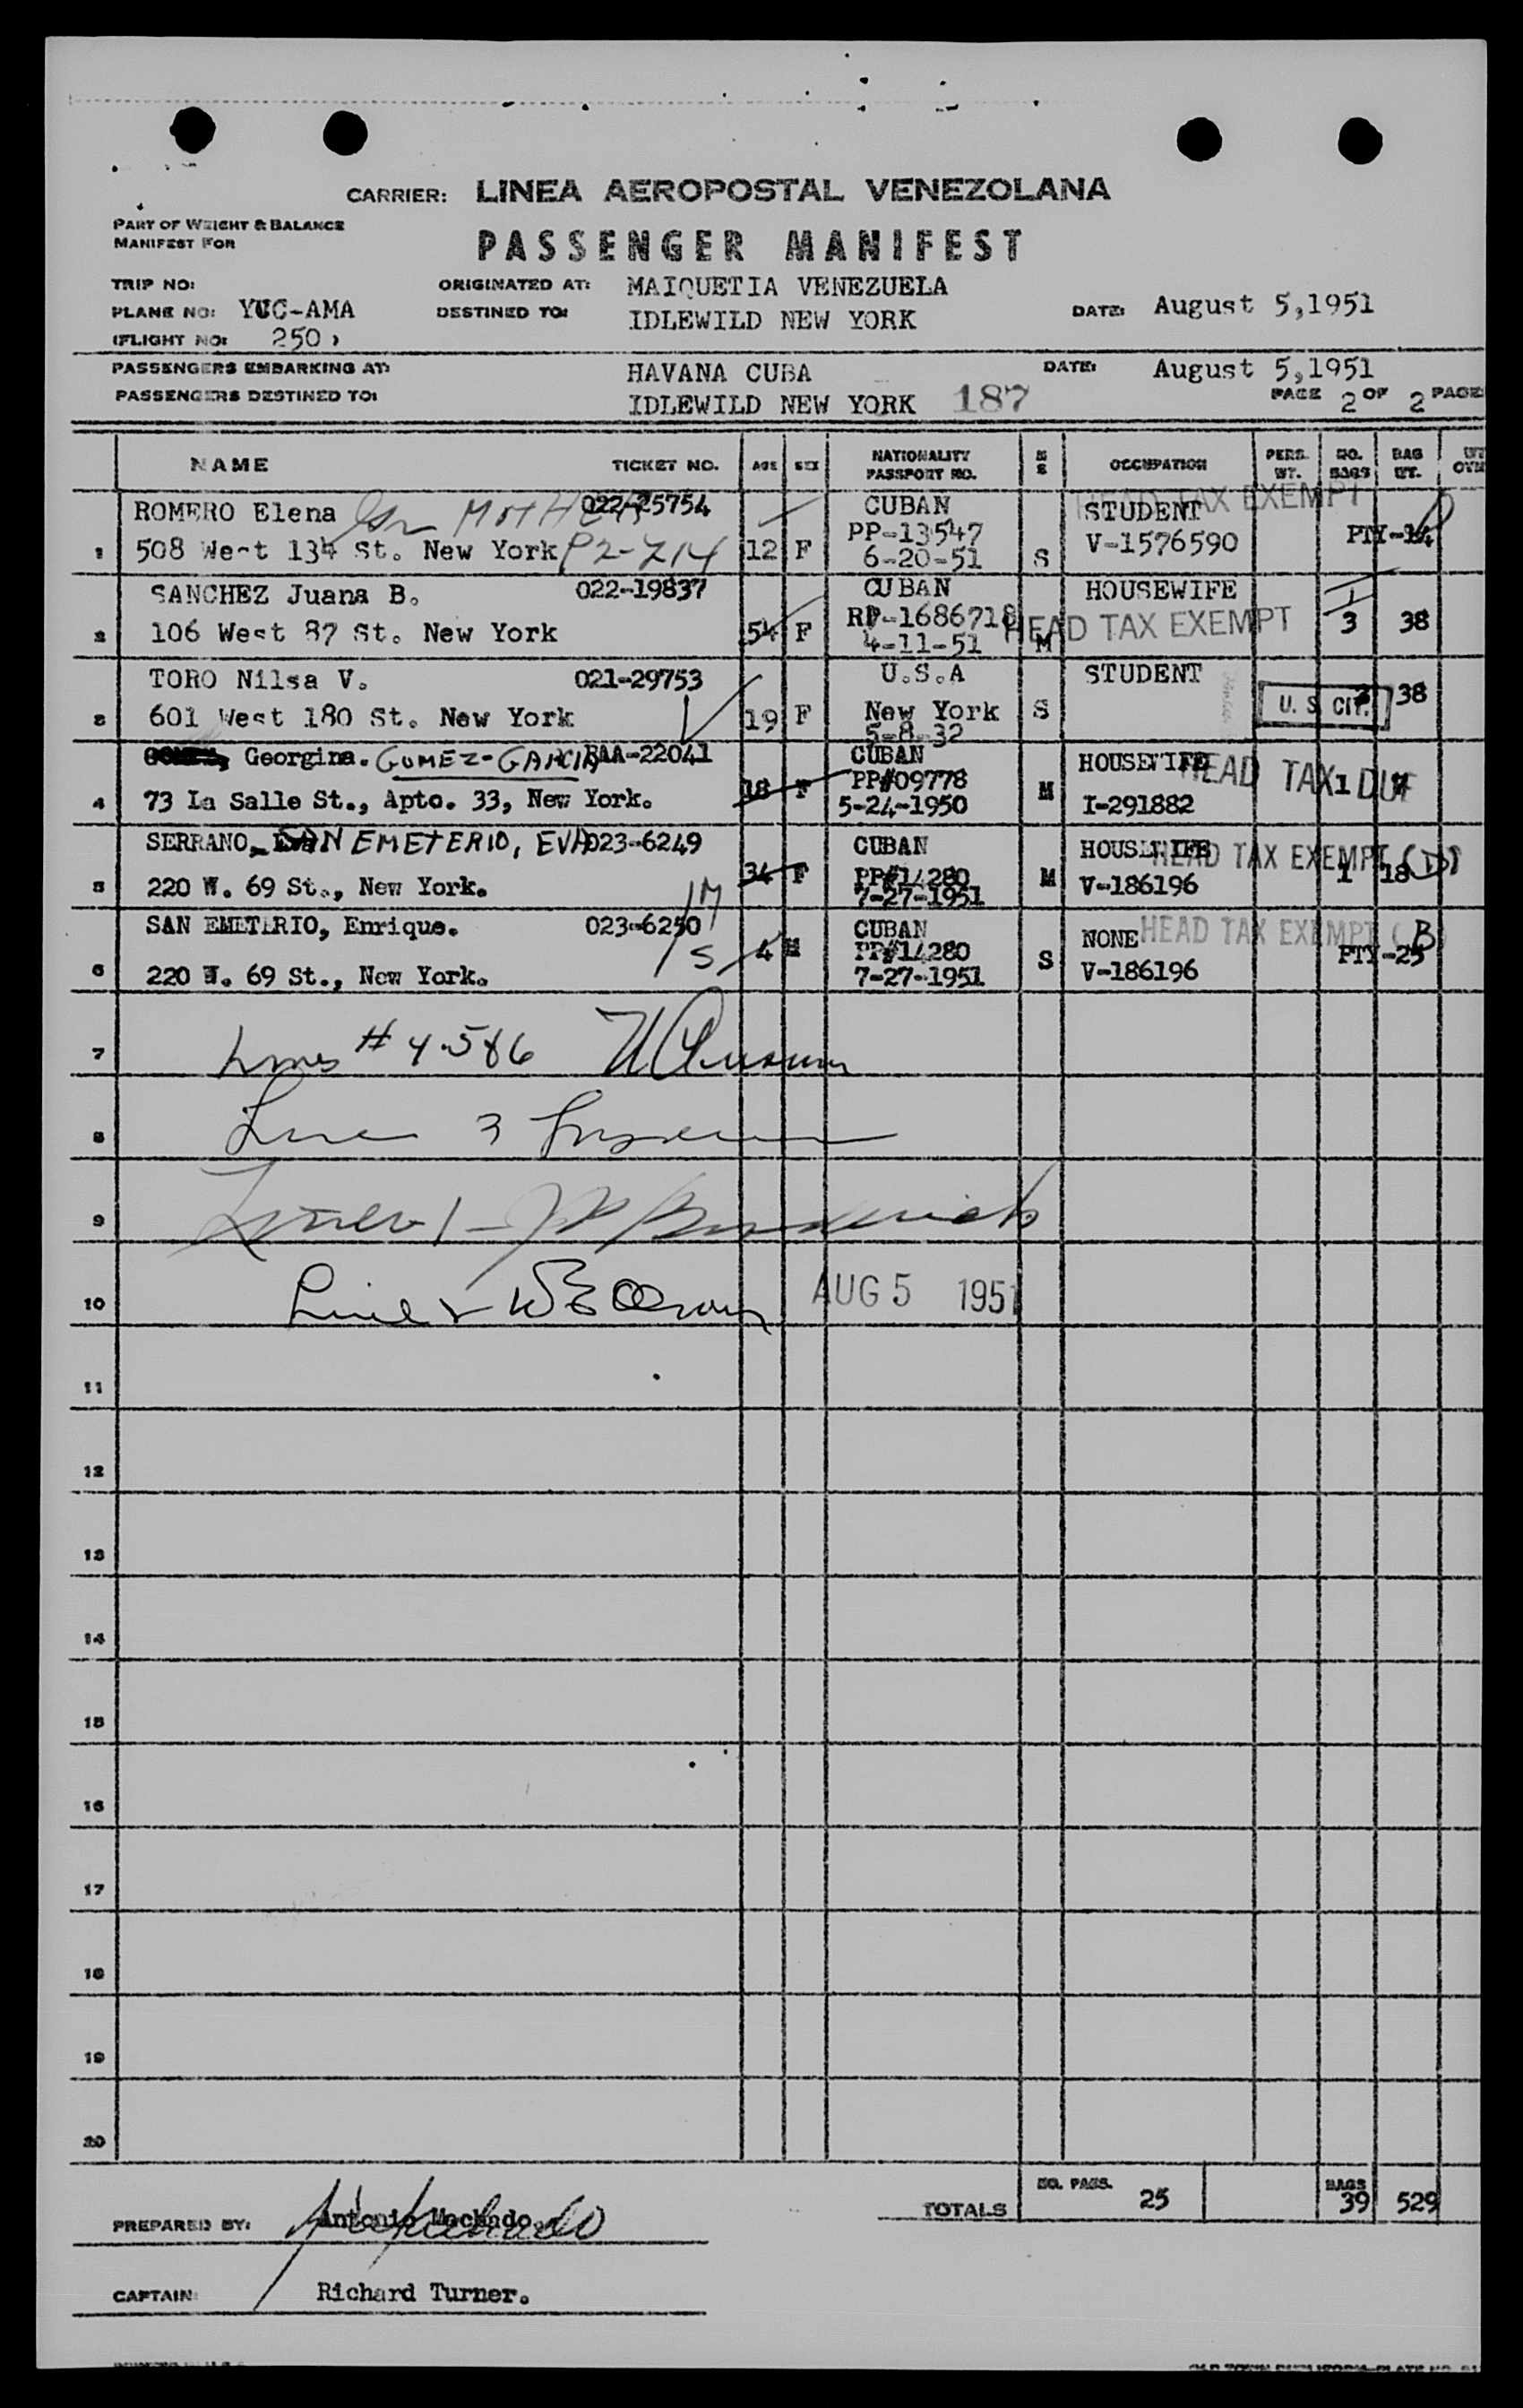 CARRIER: LINEA AEROPOSTAL VENEZOLANA
PART OF WEIGHT & BALANCE
MANIFEST FOR
PASSENGER MANIFEST
TRIP NO:
ORIGINATED AT: MAIQUETIA VENEZUELA
PLANE NO: YUC-AMA
DESTINED TO: IDLEWILD NEW YORK
DATE: August 5,1951
(FLIGHT NO: 250)
PASSENGERS EMBARKING AT: HAVANA CUBA
DATE: August 5,1951
PASSENGERS DESTINED TO: IDLEWILD NEW YORK 187
PAGE 2 OF 2 PAGE
NAME TICKET NO. AGE SEX NATIONALITY PASSPORT NO. M S OCCUPATION PERS. WT. NO. BAGS BAG WT.
HEAD TAX EXEMPT
ROMERO Elena MOTHER 022-25754 CUBAN STUDENT
1 508 West 134 St. New York P2-L14 12 F PP-13547 S V-1576590 PTY-14
6-20-51
SANCHEZ Juana B. 022-19837 CUBAN HOUSEWIFE
2 106 West 87 St. New York 54 F RP-1686718 M HEAD TAX EXEMPT 3 38
4-11-51
TORO Nilsa V. 021-29753 U.S.A STUDENT
3 601 West 180 St. New York 19 F New York S U. S. CIT. 38
5-8-32
Georgina. GOMEZ-GARCIA 22041 CUBAN HOUSEWIFE HEAD TAX DUE
4 73 La Salle St., Apto. 33, New York. 18 F PP#09778 M I-291882 1
5-24-1950
SERRANO, SAN EMETERIO, EVA 023-6249 CUBAN HOUSEWIFE HEAD TAX EXEMPT (D)
5 220 W. 69 St., New York. 34 F PP#14280 M V-186196 1 18
7-27-1951
SAN EMETERIO, Enrique. 023-6250 CUBAN NONE HEAD TAX EXEMPT (B)
M/S 4 M PP#14280 PTY-25
6 220 W. 69 St., New York. 7-27-1951 S V-186196
7 Lines # 4-5&6
8 Line 3
9 Line 1 -
10 Line 2 AUG 5 1951
11
12
13
14
15
16
17
18
19
20
NO. PASS. 25 BAGS 39 529
TOTALS
PREPARED BY: Antonio Machado.
CAPTAIN: Richard Turner.